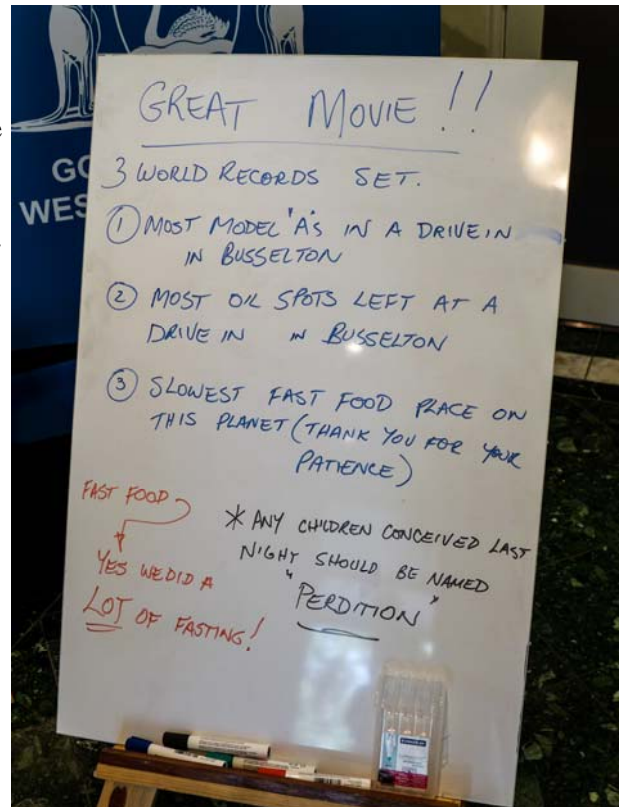 GREAT MOVIE!!
3 WORLD RECORDS SET.
① MOST MODEL 'A's IN A DRIVE IN
IN BUSSELTON
② MOST OIL SPOTS LEFT AT A
DRIVE IN IN BUSSELTON
③ SLOWEST FAST FOOD PLACE ON
THIS PLANET (THANK YOU FOR YOUR
PATIENCE)
FAST FOOD
YES WE DID A
LOT OF FASTING!
* ANY CHILDREN CONCEIVED LAST
NIGHT SHOULD BE NAMED
"PERDITION"
GO
WES